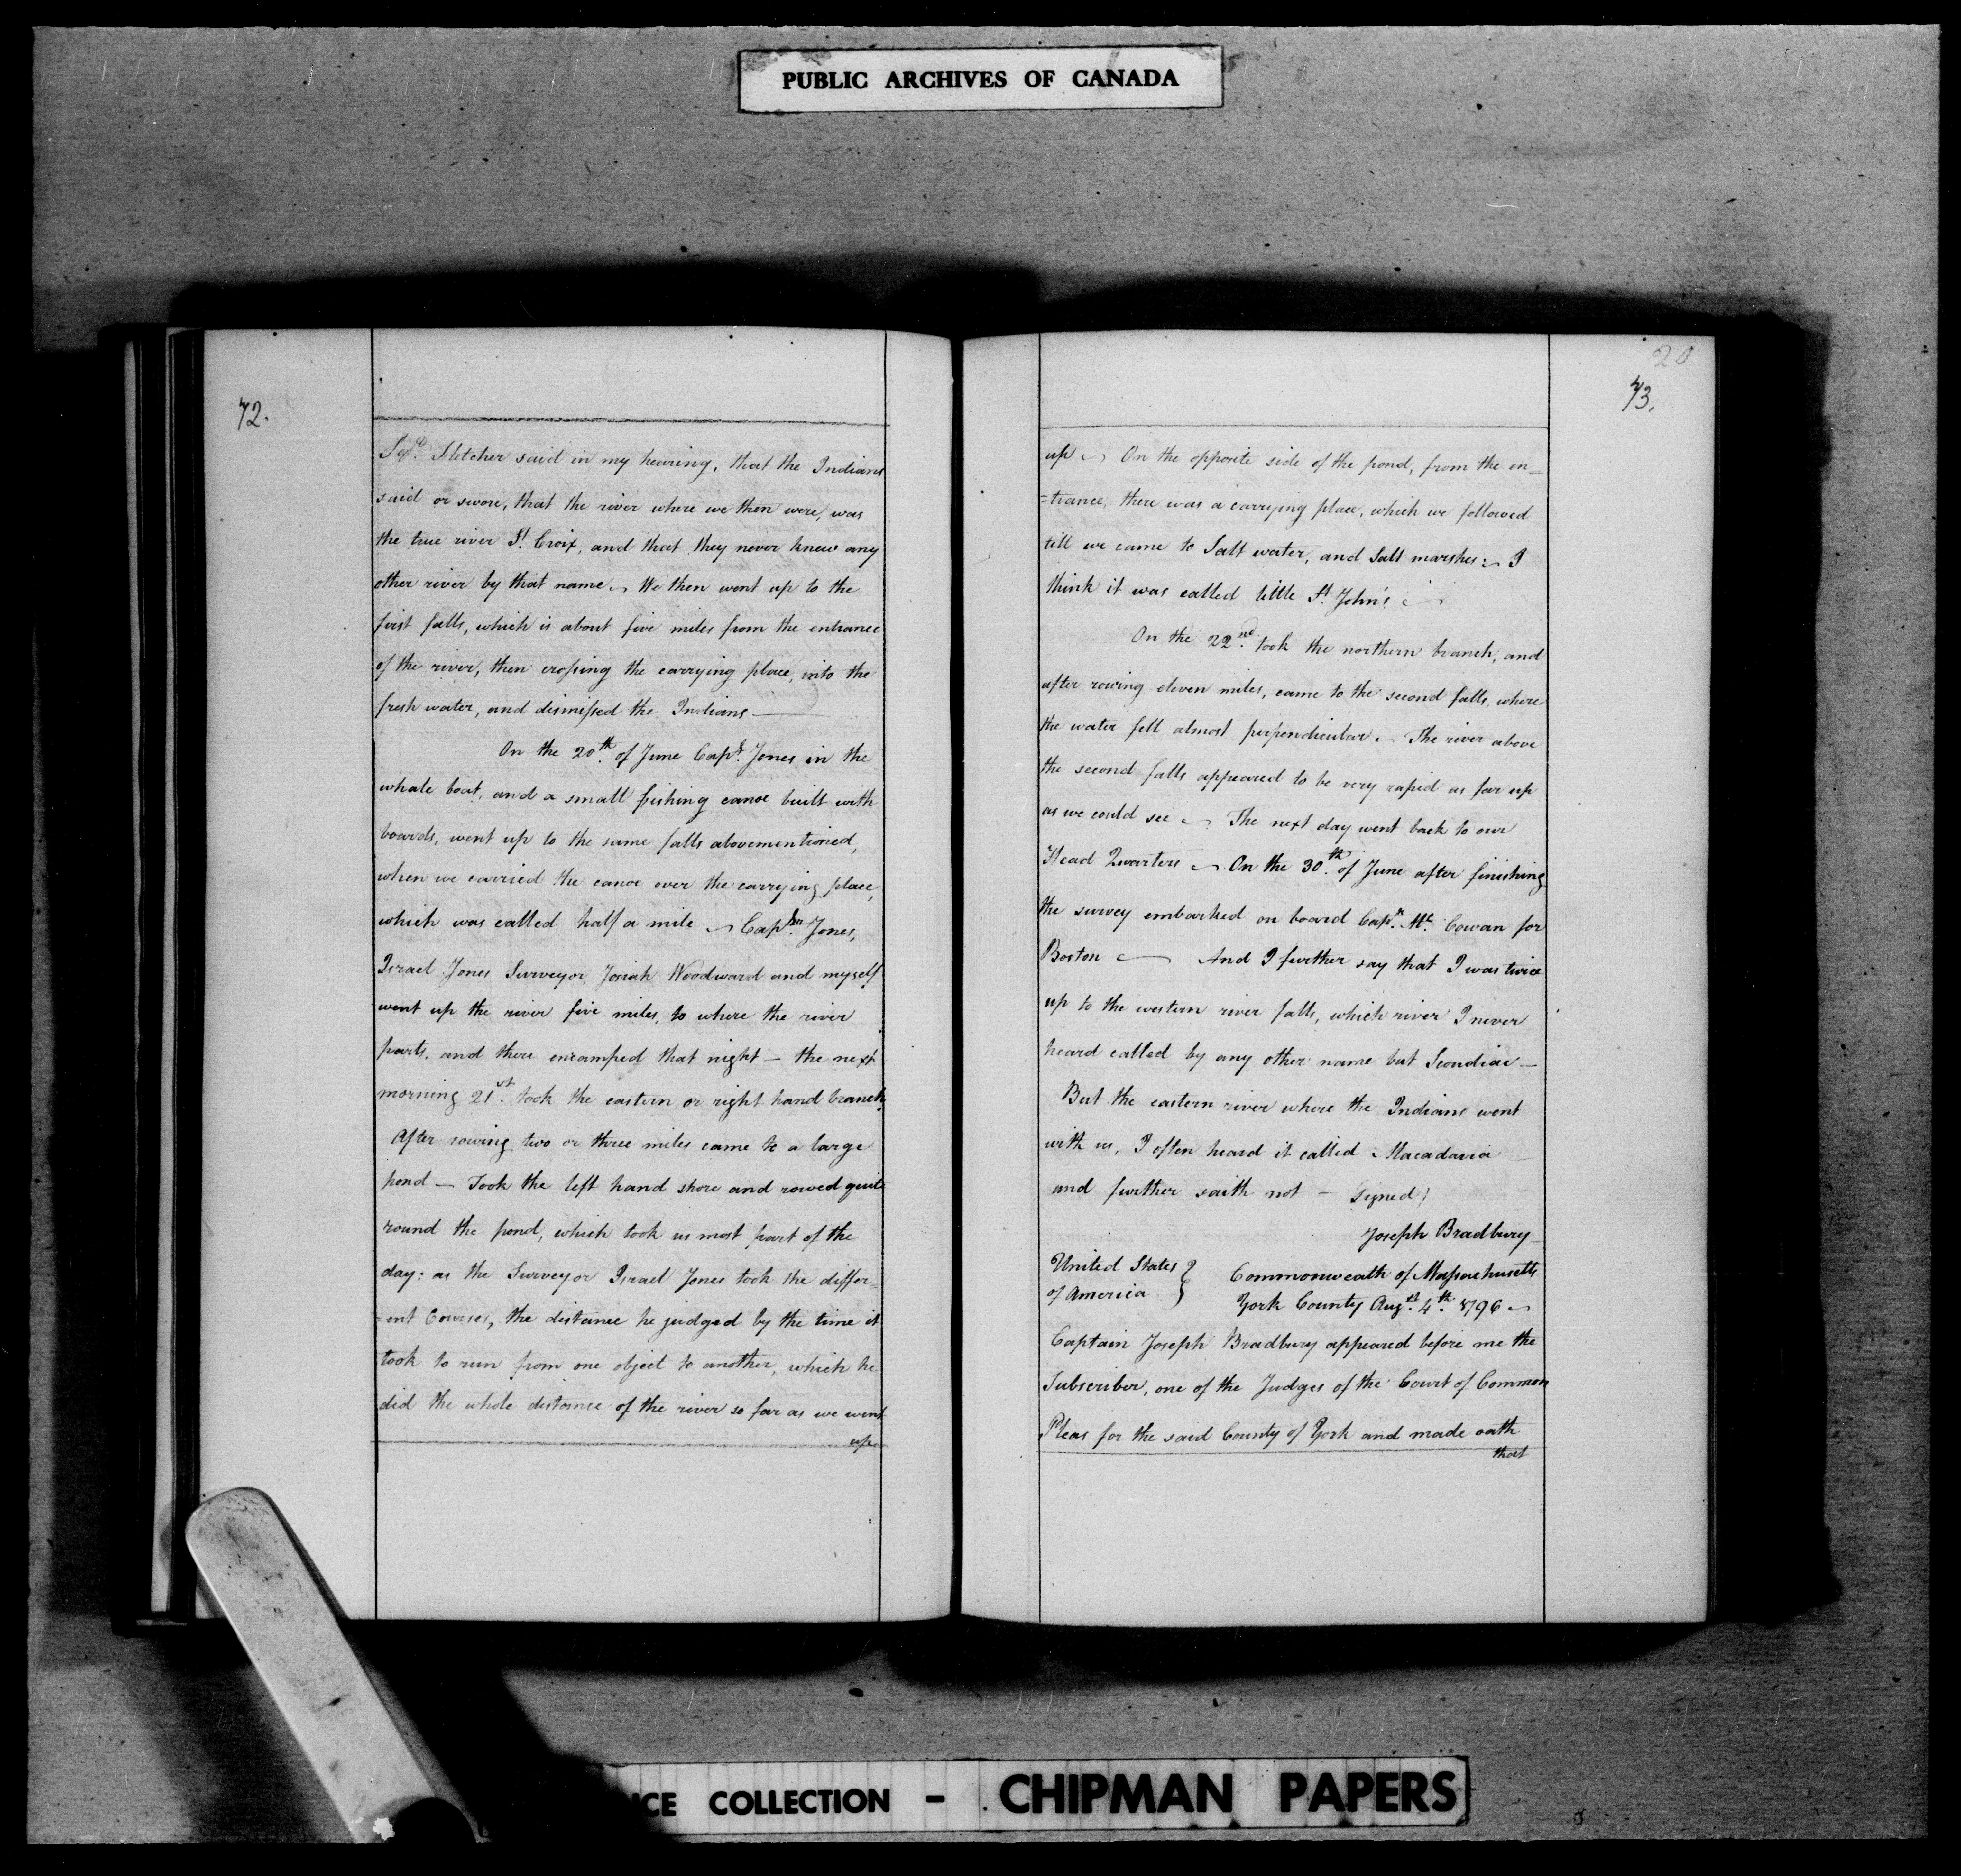 PUBLIC ARCHIVES OF CANADA
72.
Fletcher said in my hearing, that the Indians
said or swore, that the river where we then were, was
the true river St. Croix, and that they never knew any
other river by that name ~ We then went up to the
first falls, which is about five miles from the entrance
of the river, then crossing the carrying place, into the
fresh water, and dismissed the Indians —
On the 20th. of June Capt. Jones in the
whale boat, and a small fishing canoe built with
boards, went up to the same falls abovementioned,
when we carried the canoe over the carrying place,
which was called half a mile ~ Captn. Jones,
Israel Jones Surveyor, Josiah Woodward and myself
went up the river five miles, to where the river
parts, and there encamped that night — the next
morning 21st. took the eastern or right hand branch.
After rowing two or three miles came to a large
pond — Took the left hand shore and rowed quite
round the pond, which took us most part of the
day: as the Surveyor Israel Jones took the differ=
=ent Courses, the distance he judged by the time it
took to run from one object to another, which he
did the whole distance of the river so far as we went
up
20
73.
up ~ On the opposite side of the pond, from the en=
=trance, there was a carrying place, which we followed
till we came to Salt water, and Salt marshes: ~ I
think it was called little St. John's ~
On the 22nd. took the northern branch, and
after rowing eleven miles, came to the second falls, where
the water fell almost perpendicular. ~ The river above
the second falls appeared to be very rapid as far up
as we could see ~ The next day went back to our
Head Quarters ~ On the 30th. of June after finishing
the survey embarked on board Capn. Mc. Cowan for
Boston — And I further say that I was twice
up to the western river falls, which river I never
heard called by any other name but Scoudiac —
But the eastern river where the Indians went
with us, I often heard it called Macadavia
and further saith not — Signed)
Joseph Bradbury
United States } Commonwealth of Massachusetts
of America } York County Augst. 4th. 1796 ~
Captain Joseph Bradbury appeared before me the
Subscriber, one of the Judges of the Court of Common
Pleas for the said County of York and made oath
that
ICE COLLECTION - CHIPMAN PAPERS